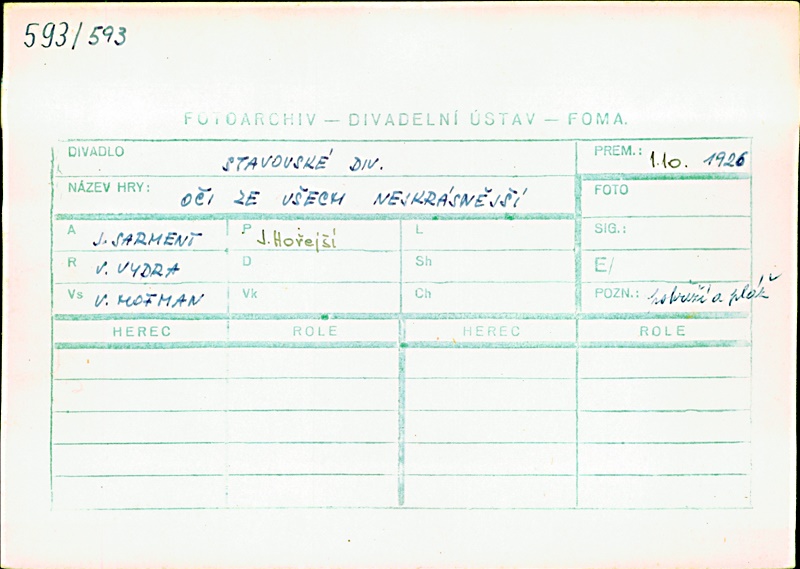 593/593
FOTOARCHIV — DIVADELNÍ ÚSTAV — FOMA.
DIVADLO STAVOVSKÉ DIV. PREM.: 1.10. 1926
NÁZEV HRY: OČI ZE VŠECH NEJKRÁSNĚJŠÍ FOTO
A J. SARMENT P J. Hořejší L SIG.:
R V. VYDRA D Sh E/
Vs V. HOFMAN Vk Ch POZN.: a
HEREC ROLE HEREC ROLE